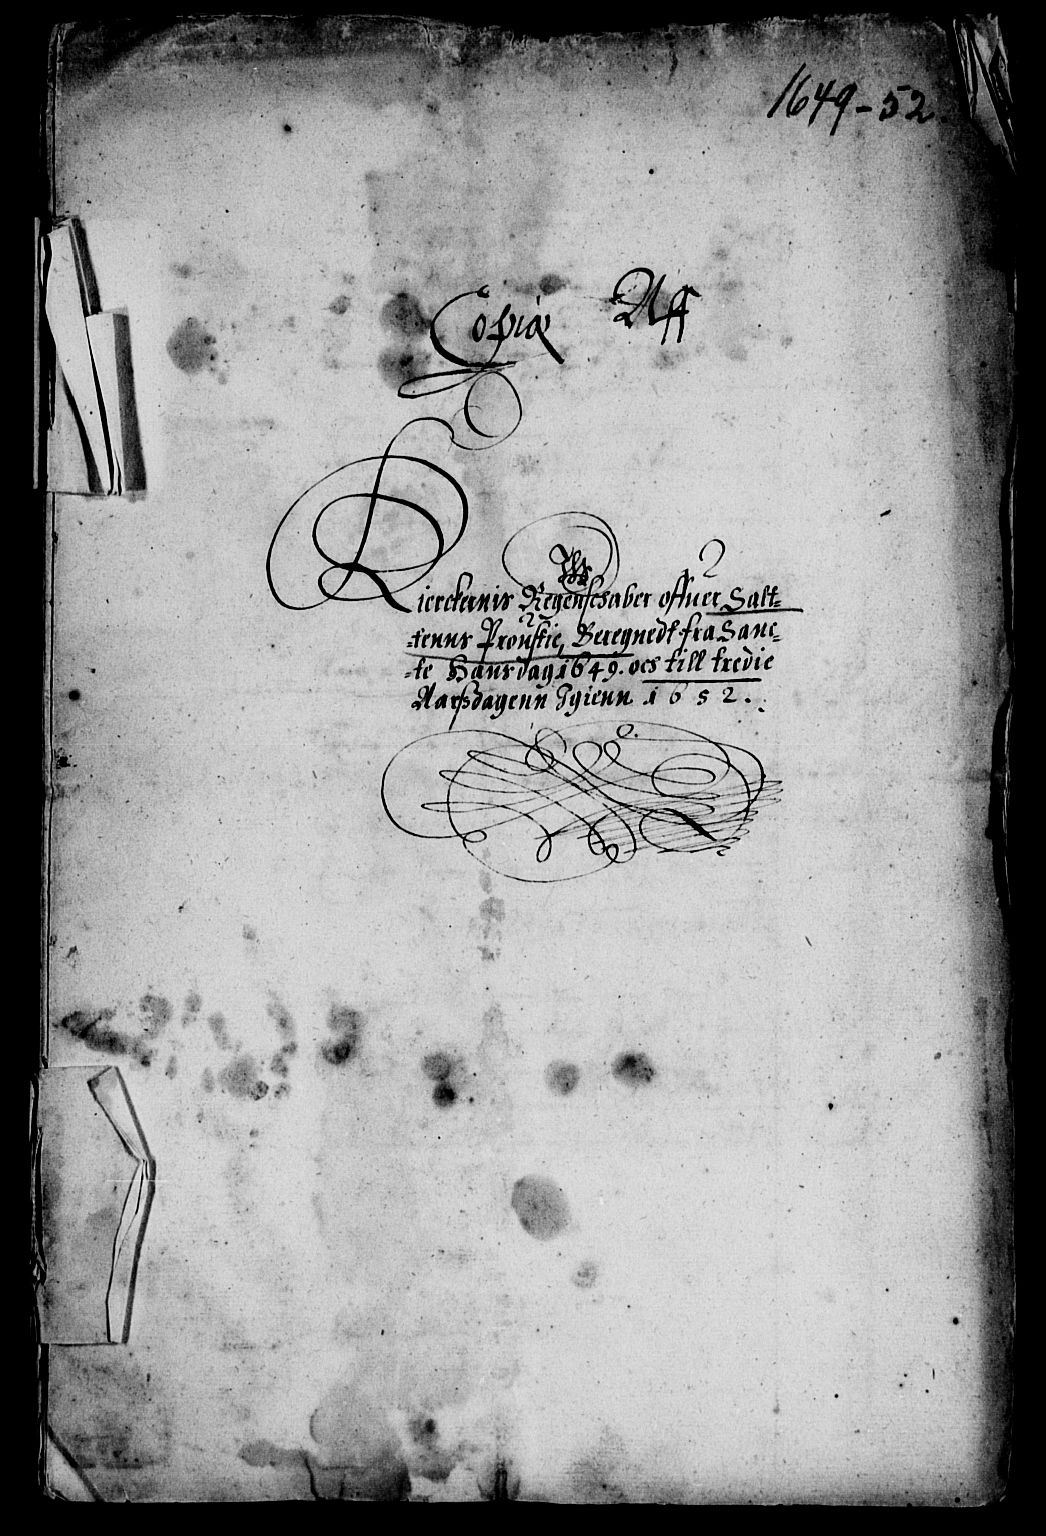 1649-52.
Copia Aff
Kierckernis Regenschaber offuer Salt-
-tenns Proustie, Beregnedt fra Sanc-
-te Hansdag 1649. och till tredie
Aarßdagenn Igienn 1652.